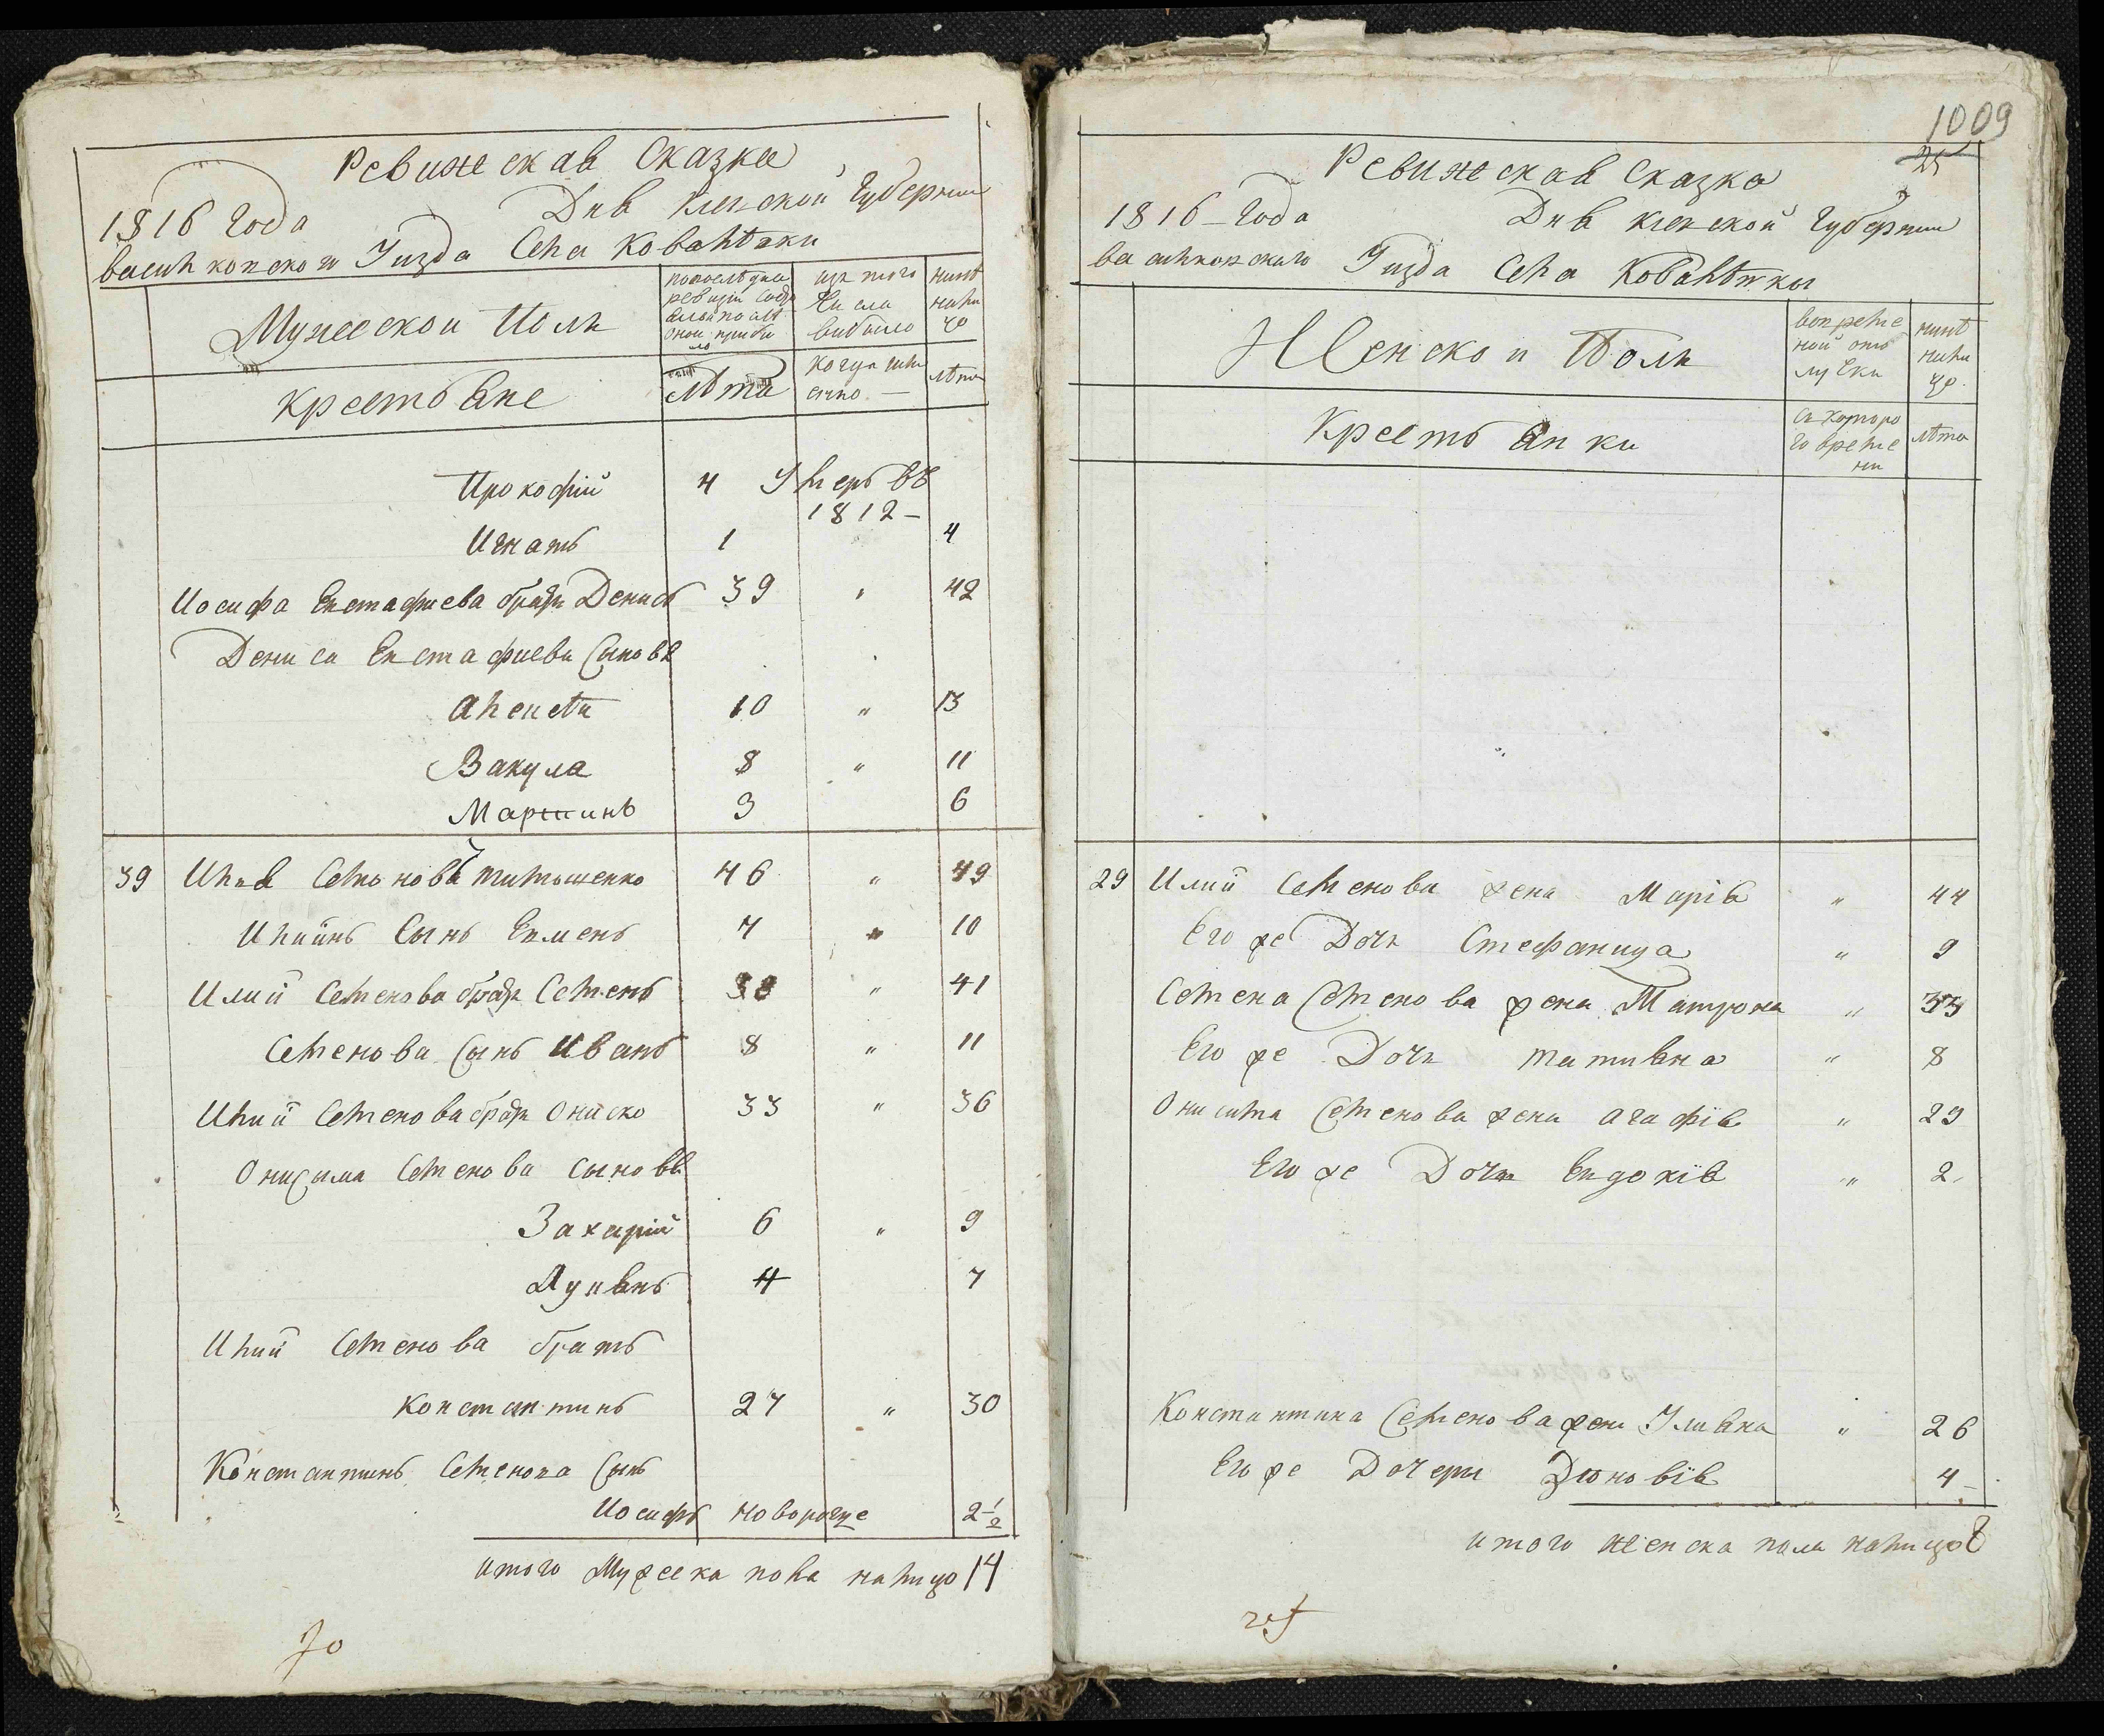 Ревижская Сказка
1816 Года Дня Киевской Губернии
василковского Уизда Села Ковалѣвки
Мужеской Полъ
изъ того числа выбыло
нинѣ налицо
Крестьяне
лѣта
когда именно —
лѣта
Прокофій 4 Умеръ въ 1812 —
Игнатъ 1 4
Иосифа Евстафиева братъ Денисъ 39 " 42
Дениса Евстафиева Сыновя
Алексѣй 10 " 13
Вакула 8 " 11
Мартинъ 3 6
39 Илия Семеновъ Титышенко 46 " 49
Илиинъ Сынъ Евменъ 7 " 10
Илии Семенова братъ Семенъ 38 " 41
Семенова Сынъ Иванъ 8 " 11
Илии Семенова братъ Ониско 33 " 36
Онисима Семенова Сыновя
Захарій 6 " 9
Лукянъ 4 7
Илии Семенова братъ
Константинъ 27 " 30
Константинъ Семенова Сынъ
Иосифъ новорожде 2 1/2
итого Мужеска пола налицо 14
70
1009
25
Ревижская Сказка
1816 – Года Дня Киевской Губернии
василковскаго Уизда Села Ковалѣвки
Женской Полъ
вовремѣной отлучки
нинѣ налицо
Крестьянки
съ которого времени
лѣта
29 Илии Семенова жена Марія " 44
Его же Дочь Стефанида " 9
Семена Семенова жена Матрона " 33
Его же Дочь Татияна " 8
Онисима Семенова жена Агафія " 29
Его же Дочь Евдокія " 2
Константина Семенова жена Улияна " 26
Его же Дочери Зѣновія 4 –
итого женска пола налицо 8